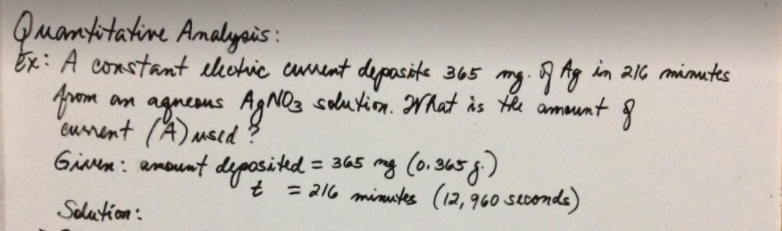 Quantitative Analysis:
Ex: A constant electric current deposits 365 mg. of Ag in 216 minutes
from an aqueous AgNO3 solution. What is the amount of
current (A) used?
Given: amount deposited = 365 mg (0.365 g.)
t = 216 minutes (12,960 seconds)
Solution: